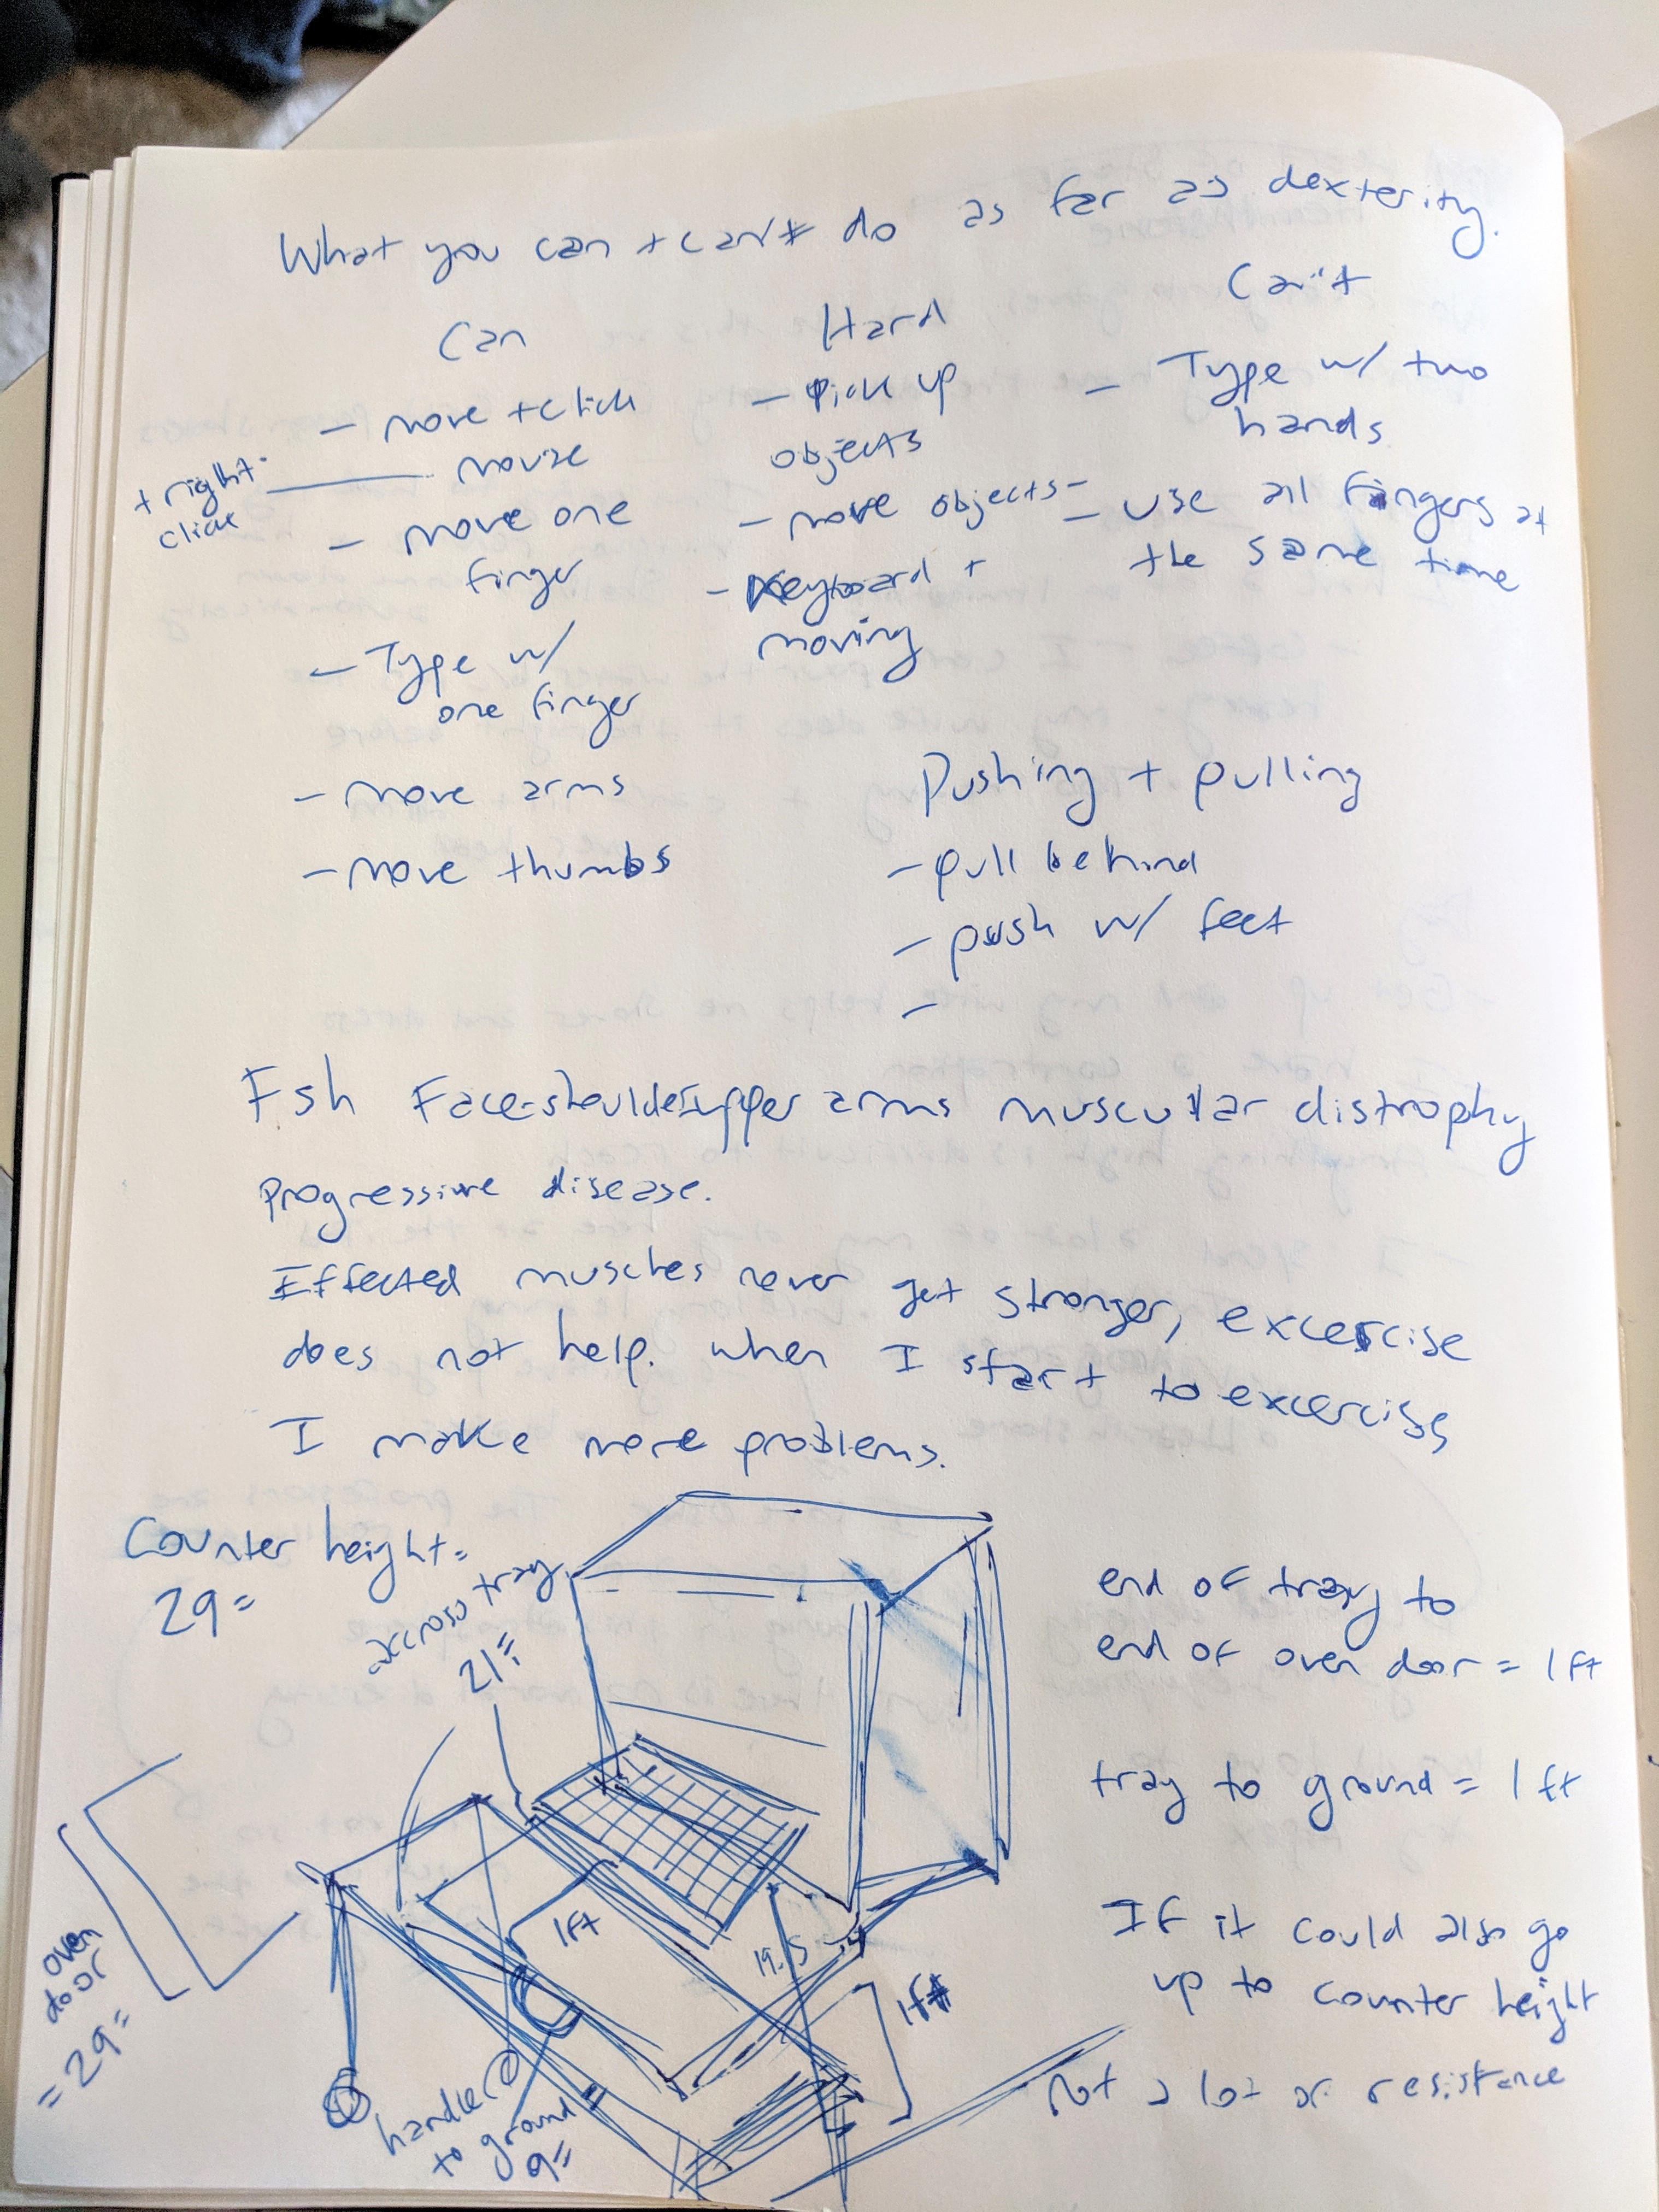 What you can + can't do as far as dexterity.
Can
- move + click
mouse
+ right
click
- move one
finger
- Type w/
one finger
- move arms
- move thumbs
Hard
- Pick up
objects
- move objects
- Keyboard +
moving
Can't
- Type w/ two
hands
- use all fingers at
the same time
Pushing + pulling
- pull behind
- push w/ feet
-
Fsh Face-shoulder-upper arms muscular distrophy
progressive disease.
Effected muscles never get stronger, excercise
does not help. when I start to excercise
I make more problems.
Counter height =
29"
accross tray
21"
end of tray to
end of oven door = 1 ft
tray to ground = 1 ft
If it could also go
up to counter height
not a lot of resistance
oven
door
= 29"
1ft
19.5
1ft
handle
to ground
9"